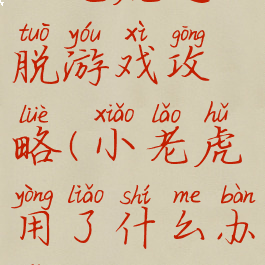 tuō yóu xì gōng
脱游戏攻
lüè xiǎo lǎo hǔ
略(小老虎
yòng liǎo shí me bàn
用了什么办